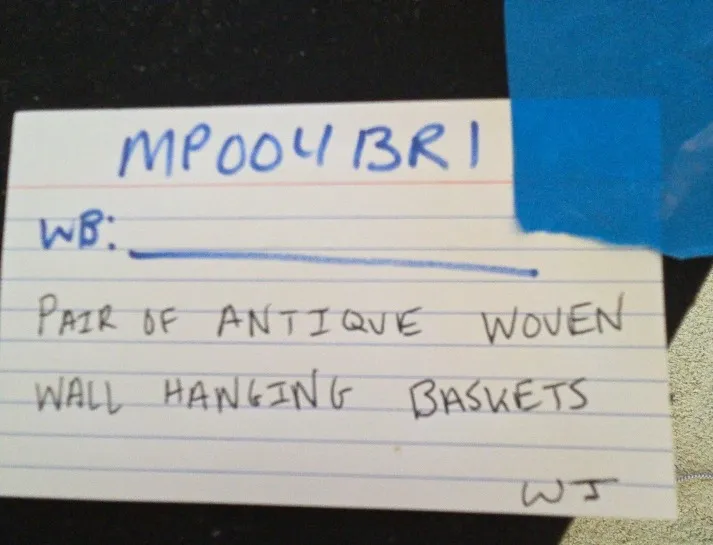 MP004BR1
WB:
PAIR OF ANTIQUE WOVEN
WALL HANGING BASKETS
WJ